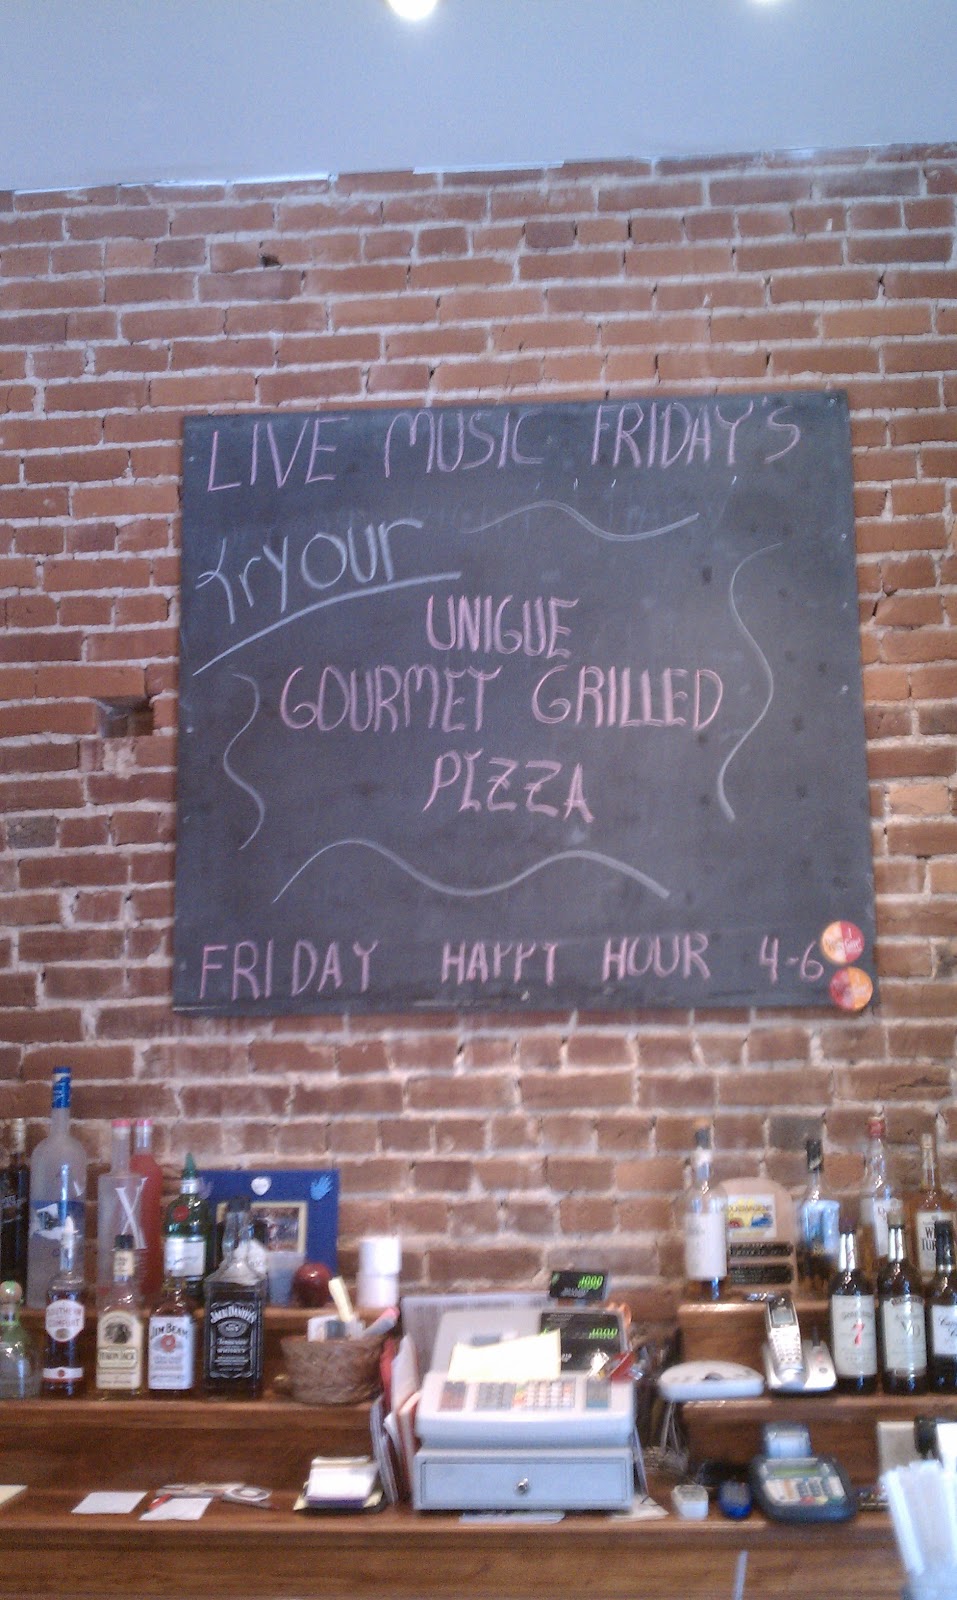 LIVE MUSIC FRIDAY'S
try our
UNIGUE
GOURMET GRILLED
PIZZA
FRIDAY HAPPY HOUR 4-6
X
JIM BEAM
JACK DANIEL'S
7